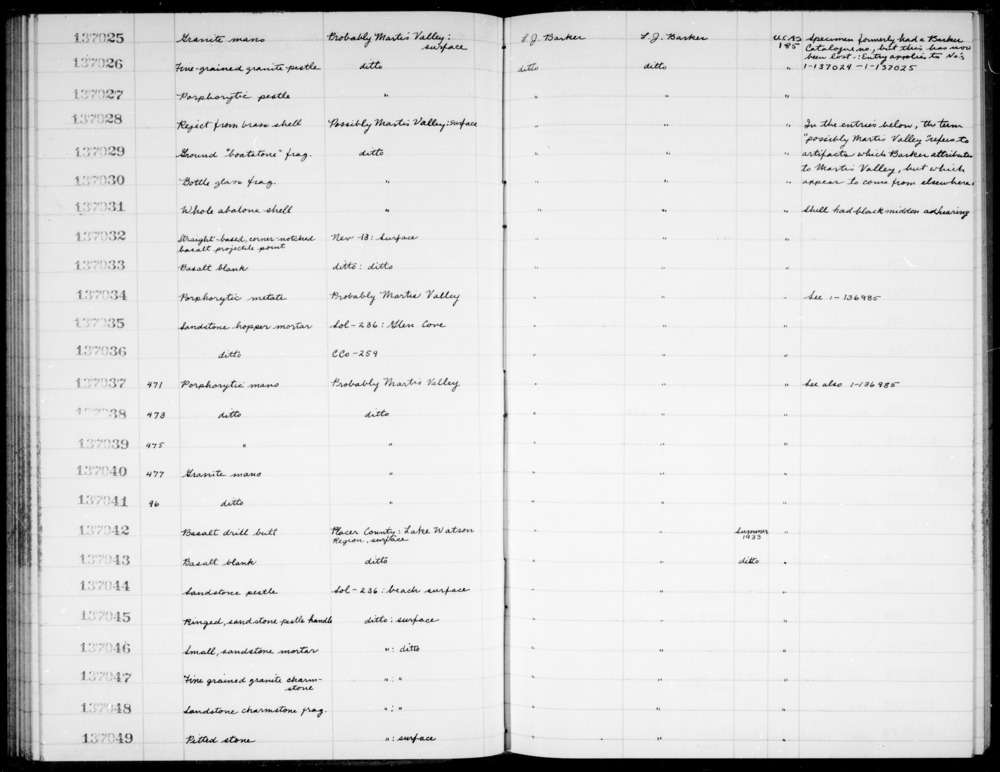 137025 Granite mano Probably Martis Valley: surface L.J. Barker L.J. Barker UCAS 185 Specimen formerly had a Barker
Catalogue no, but this has now
been lost-: Entry applies to No's
137026 Fine-grained granite pestle ditto ditto ditto " 1-137024 - 1-137025
137027 Porphorytic pestle " " " "
137028 Reject from brass shell Possibly Martis Valley: surface " " " In the entries below, the term
"possibly Martis Valley" refers to
137029 Ground "boatstone" frag. ditto " " " artifacts which Barker attributes
to Martis Valley, but which
137030 Bottle glass frag. " " " " appear to come from elsewhere.
137031 Whole abalone shell " " " " Shell had black midden adhearing
137032 Straight-based, corner-notched Nev-13: surface " " "
basalt projectile point
137033 Basalt blank ditto: ditto " " "
137034 Porphorytic metate Probably Martis Valley " " " See 1-136985
137035 Sandstone hopper mortar Sol-236: Glen Cove " " "
137036 ditto CCo-259 " " "
137037 471 Porphorytic mano Probably Martis Valley " " " See also 1-136985
137038 473 ditto ditto " " "
137039 475 " " " " "
137040 477 Granite mano " " " "
137041 96 ditto " " " "
137042 Basalt drill butt Placer County: Lake Watson " " Summer 1933 "
Region, surface
137043 Basalt blank ditto " " ditto "
137044 Sandstone pestle Sol-236: beach surface " " "
137045 Ringed, sandstone pestle handle ditto: surface " " "
137046 Small, sandstone mortar ": ditto " " "
137047 Fine grained granite charm- ": " " " "
stone
137048 Sandstone charmstone frag. ": " " " "
137049 Pitted stone ": surface " " "